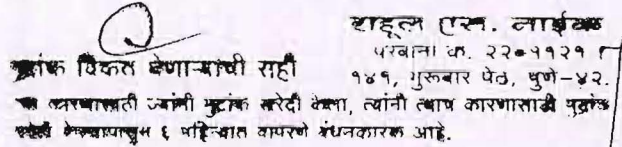 राहूल एस. नाईक
परवाना क्र. २२०११२१
मुद्रांक विकत घेणाऱ्याची सही
१४१, गुरूवार पेठ, पुणे-४२.
ज्या कारणासाठी ज्यांनी मुद्रांक खरेदी केला, त्यांनी त्याच कारणासाठी मुद्रांक
खरेदी केल्यापासून ६ महिन्यात वापरणे बंधनकारक आहे.